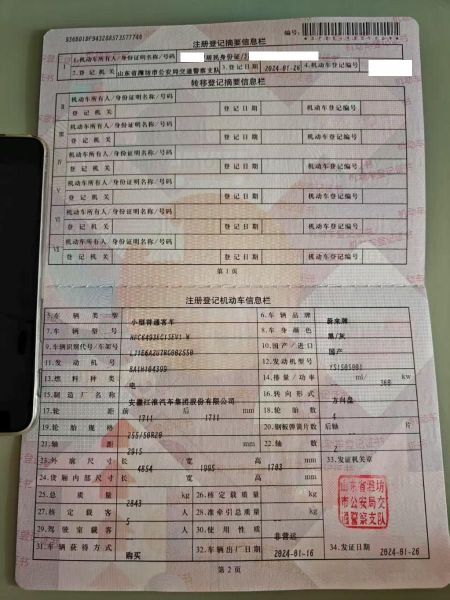 注册登记摘要信息栏
编号:
1.机动车所有人/身份证明名称/号码 居民身份证/2
2.登记机关 山东省潍坊市公安局交通警察支队 3.登记日期 2024-01-26 4.机动车登记编号
转移登记摘要信息栏
II 机动车所有人/身份证明名称/号码
登记机关 登记日期 机动车登记编号
III 机动车所有人/身份证明名称/号码
登记机关 登记日期 机动车登记编号
IV 机动车所有人/身份证明名称/号码
登记机关 登记日期 机动车登记编号
V 机动车所有人/身份证明名称/号码
登记机关 登记日期 机动车登记编号
VI 机动车所有人/身份证明名称/号码
登记机关 登记日期 机动车登记编号
VII 机动车所有人/身份证明名称/号码
登记机关 登记日期 机动车登记编号
第1页
注册登记机动车信息栏
5.车辆类型 小型普通客车 6.车辆品牌 蔚来牌
7.车辆型号 8.车身颜色 黑/灰
9.车辆识别代号/车架号 10.国产/进口 国产
11.发动机号 12.发动机型号
13.燃料种类 电 14.排量/功率 ml/ 360 kw
15.制造厂名称 安徽江淮汽车集团股份有限公司 16.转向形式 方向盘
17.轮距 前 1711 后 1711 mm 18.轮胎数 4
19.轮胎规格 255/50R20 20.钢板弹簧片数 后轴 片
21.轴距 2915 mm 22.轴数
23.外廓尺寸 长 4854 宽 1995 高 1703 mm 33.发证机关章
24.货厢内部尺寸 长 宽 高 mm
25.总质量 2843 kg 26.核定载质量 kg
27.核定载客 5 人 28.准牵引总质量 kg
29.驾驶室载客 人 30.使用性质 非营运
31.车辆获得方式 购买 32.车辆出厂日期 2024-01-16 34.发证日期 2024-01-26
山东省潍坊
市公安局交
通警察支队
第2页